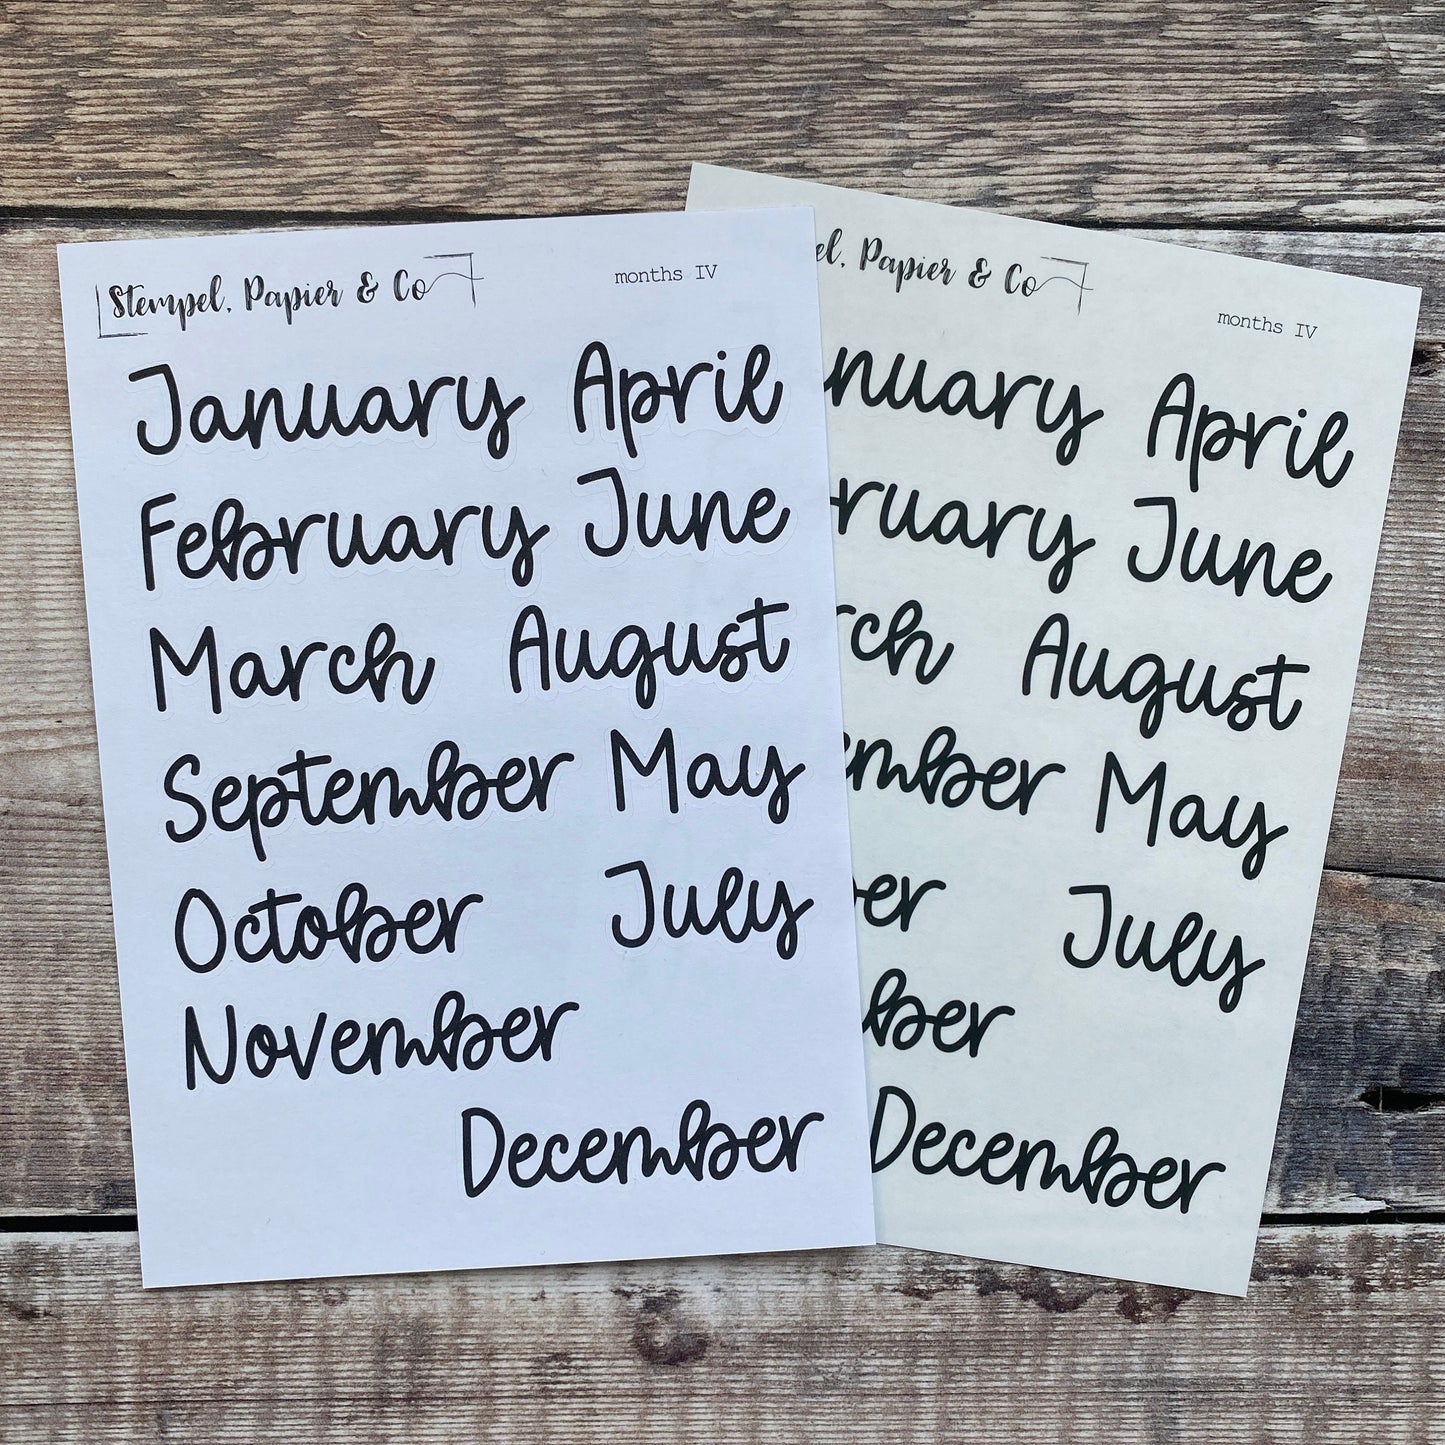 Stempel, Papier & Co
months IV
January April
February June
March August
September May
October July
November
December
Papier & Co
months IV
April
June
August
May
July
December